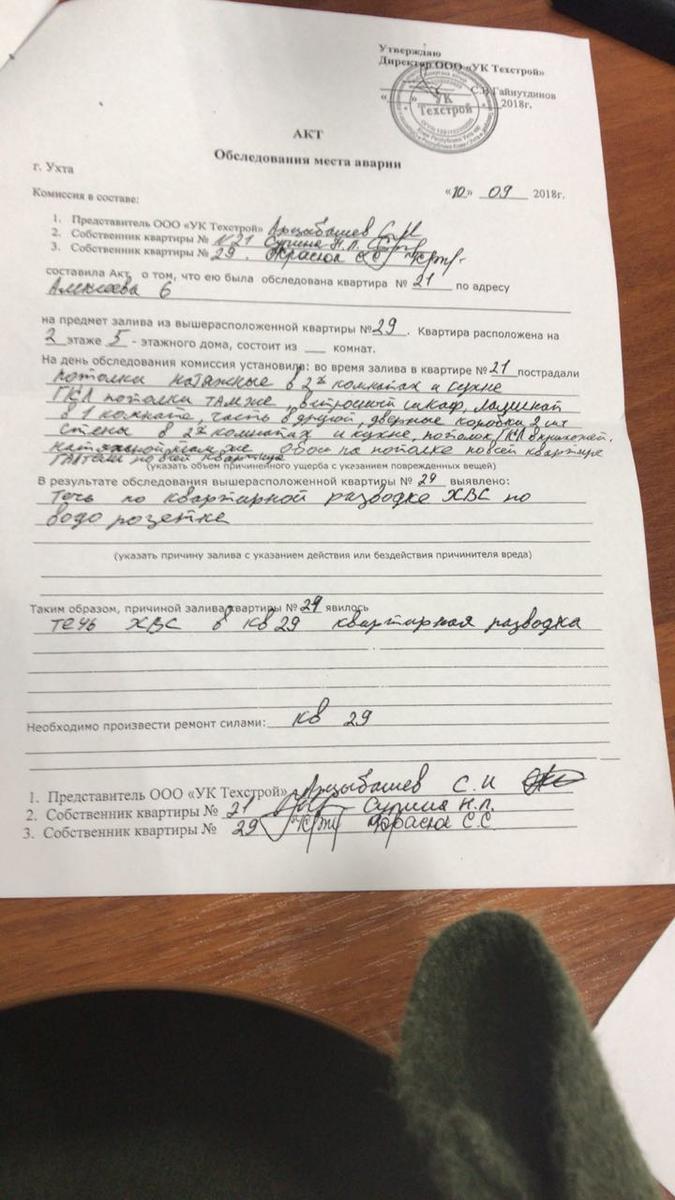 Утверждаю
Директор ООО «УК Техстрой»
С.В Гайнутдинов
« » 2018г.
УК
Техстрой
АКТ
Обследования места аварии
г. Ухта
«10» 09 2018г.
Комиссия в составе:
1. Представитель ООО «УК Техстрой» Арцыбашев С.И
2. Собственник квартиры № 21 Н.П.
3. Собственник квартиры № 29. С.С
составила Акт о том, что ею была обследована квартира № 21 по адресу
Алексеева 6
на предмет залива из вышерасположенной квартиры № 29. Квартира расположена на
2 этаже 5 - этажного дома, состоит из ___ комнат.
На день обследования комиссия установила: во время залива в квартире № 21 пострадали
потолки натяжные в 2х комнатах и кухне
ГКЛ потолки там же, встроеный шкаф, ламинат
в 1 комнате, часть в другой, дверные коробки 2 шт
стены в 2х комнатах и кухне, потолок ГКЛ в прихожей.
обои на потолке по всей квартире
по всей квартире
(указать объем причиненного ущерба с указанием поврежденных вещей)
В результате обследования вышерасположенной квартиры № 29 выявлено:
течь по квартирной разводке ХВС по
водо розетке
(указать причину залива с указанием действия или бездействия причинителя вреда)
Таким образом, причиной залива квартиры № 29 явилось
течь ХВС в кв 29 квартирная разводка
Необходимо произвести ремонт силами: кв 29
1. Представитель ООО «УК Техстрой» Арцыбашев С.И
2. Собственник квартиры № 21 Н.П.
3. Собственник квартиры № 29 С.С.